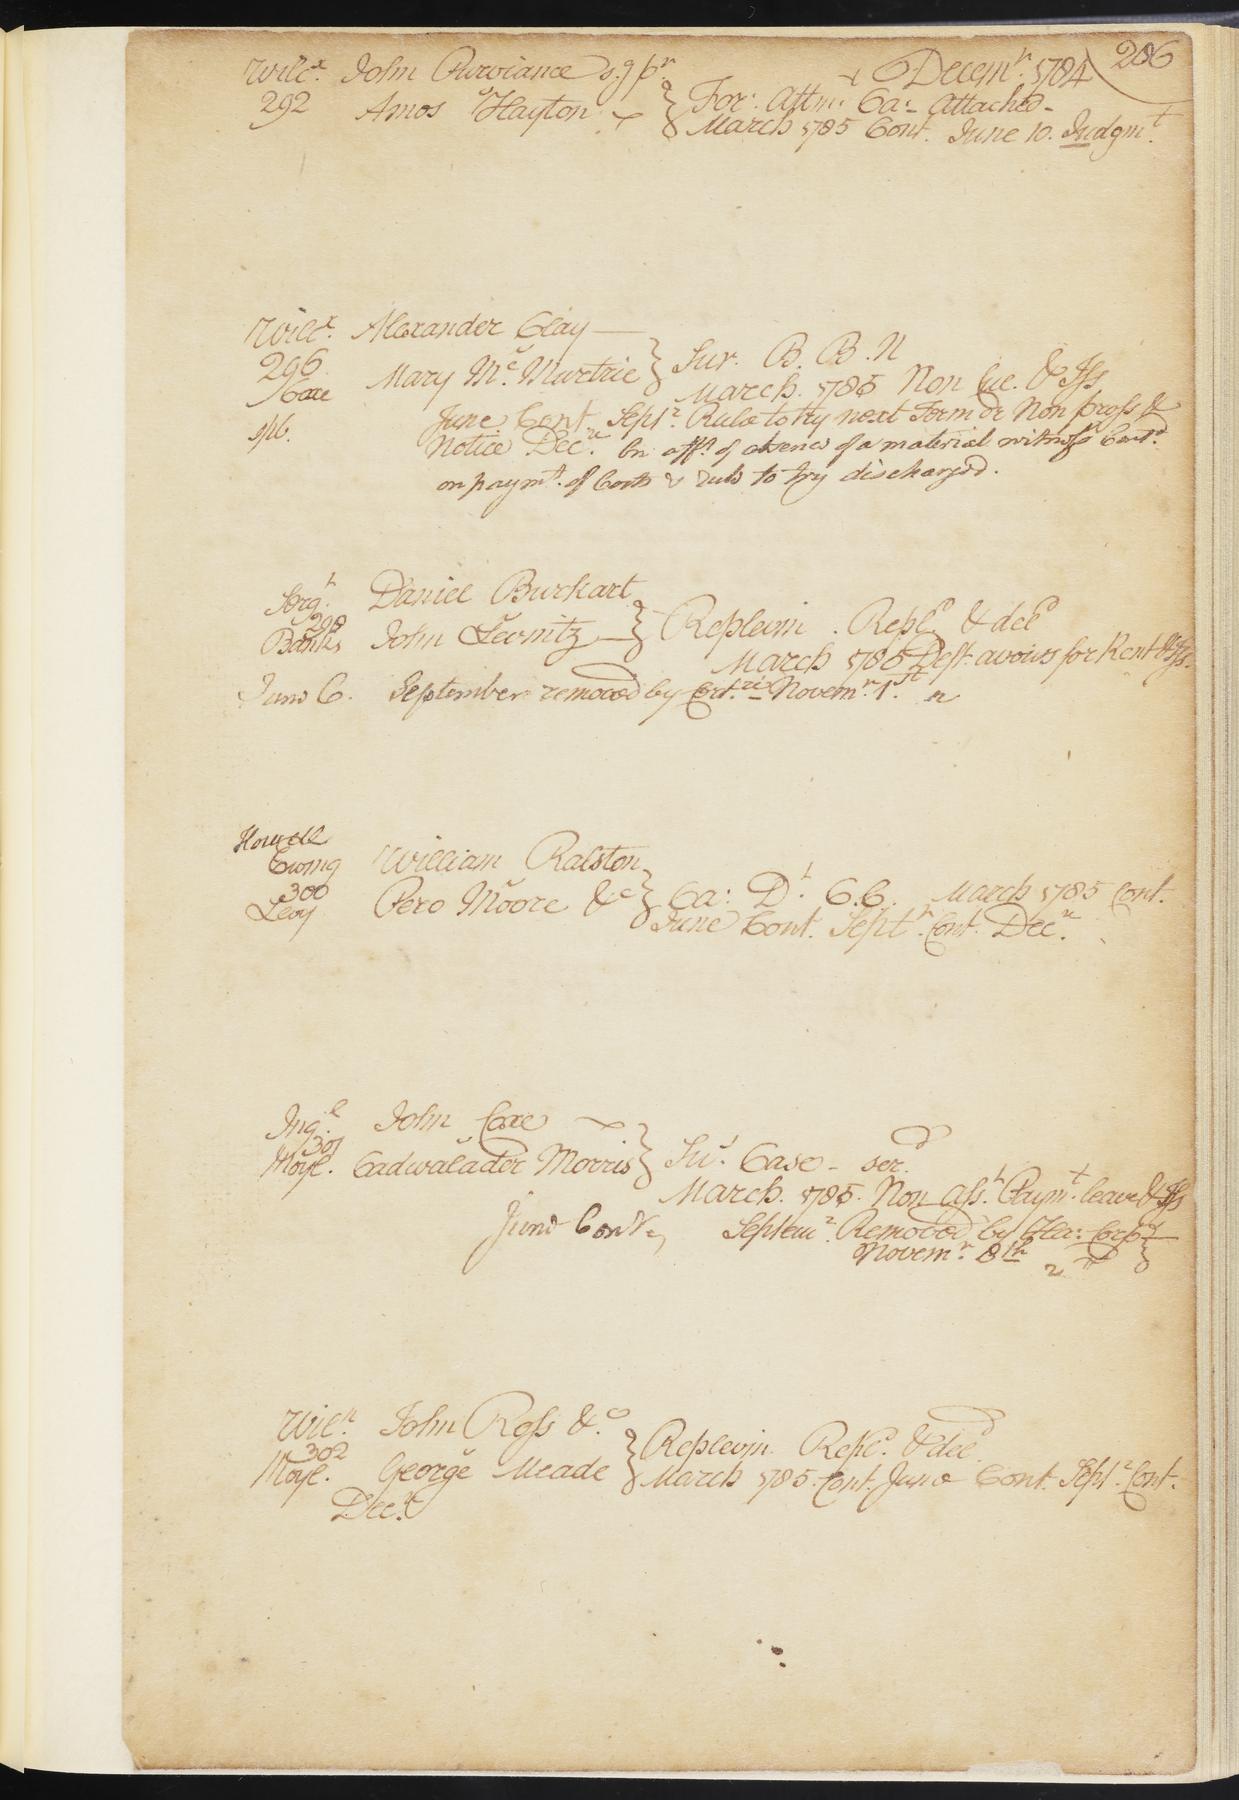 Decemr. 1784 206
Wilcx. John Purviance s.g pr.
292 Amos Hayton } For: Attmt. Ca: attached
March 1785 Cont. June 10. Judgmt.
Wilcx. Alexander Clay
296 Mary Mc. Murtrie } Sur. B. B. N
Coxe March. 1785 Non Cue. & Iss
spl. June Cont. Septr. Rule to try next Term or Non pross &
Notice Decr. On afft. of absence of a material witness Contd.
on paymt. of Costs & rule to try discharged.
Sergt. Daniel Burkart
298
Banks John Lewitz } Replevin. Repld & deld
March 1785 Deft. avows for Rent & Iss.
June C. September removed by Cert.ri Novemr. 1st.
Howell
Ewing William Ralston
300
Levy Pero Moore &c } Ca: Dt. C.C. March 1785 Cont.
June Cont. Septr. Cont. Decr.
Ingl. John Coxe
301
Moyl. Cadwalader Morris } Sur. Case - serd.
March. 1785. Non Asst. Paymt. leave & Iss
June Cont. Septemr. Removed by Ha: Corps
Novemr. 8th
Wiln. John Ross & Co.
302
Moyl. George Meade } Replevin. Repld. & deld
March 1785. Cont. June Cont. Septr. Cont.
Decr.